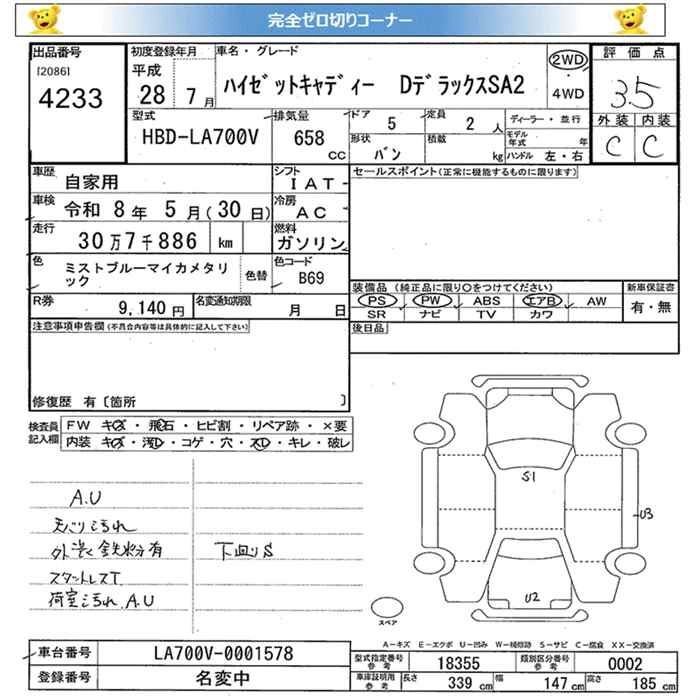 完全ゼロ切りコーナー
出品番号
[2086]
4233
初度登録年月
平成
28 7月
車名・グレード
ハイゼットキャディー DデラックスSA2
2WD
4WD
評価点
3.5
外装 内装
C C
型式
HBD-LA700V
排気量
658
cc
ドア 5
定員 2 人
形状 バン
積載 kg
ディーラー・並行
モデル年式 年
ハンドル 左・右
車歴
自家用
シフト
IAT
車検
令和 8年 5月(30日)
冷房
AC
走行
30万7千886 km
燃料
ガソリン
色
ミストブルーマイカメタリック
色替
色コード
B69
R券
9,140円
名変通知期限
月 日
セールスポイント(正常に機能するものに限ります)
装備品(純正品に限り○をつけてください)
PS PW ABS エアB AW
SR ナビ TV カワ
新車保証書
有・無
後日品
注意事項申告欄(不具合内容等は具体的に記入して下さい)
修復歴 有〔箇所 〕
検査員記入欄
FW キズ・飛石・ヒビ割・リペア跡・×要
内装 キズ・汚れ・コゲ・穴・スレ・キレ・破レ
A.U
天バリ汚れ
外装 鉄粉有
下回りS
スタットレスT
荷室汚れ.A.U
S1
U3
U2
スペア
A-キズ E-エクボ U-凹み W-補修跡 S-サビ C-腐食 XX-交換済
車台番号
LA700V-0001578
登録番号
名変中
型式指定番号参考
18355
類別区分番号参考
0002
車庫証明用参考
長さ 339 cm
幅 147 cm
高さ 185 cm